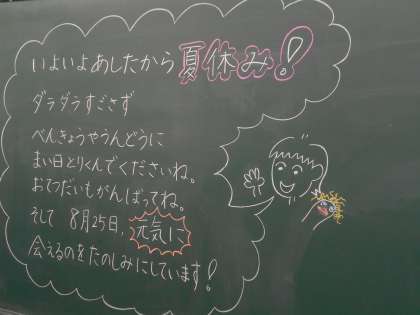 いよいよあしたから夏休み！
ダラダラすごさず
べんきょうやうんどうに
まい日とりくんでくださいね。
おてつだいもがんばってね。
そして 8月25日、元気に
会えるのをたのしみにしています！